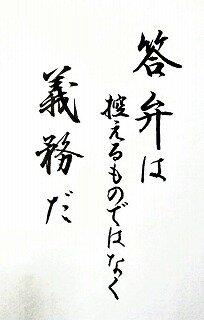 答弁は
控えるものではなく
義務だ